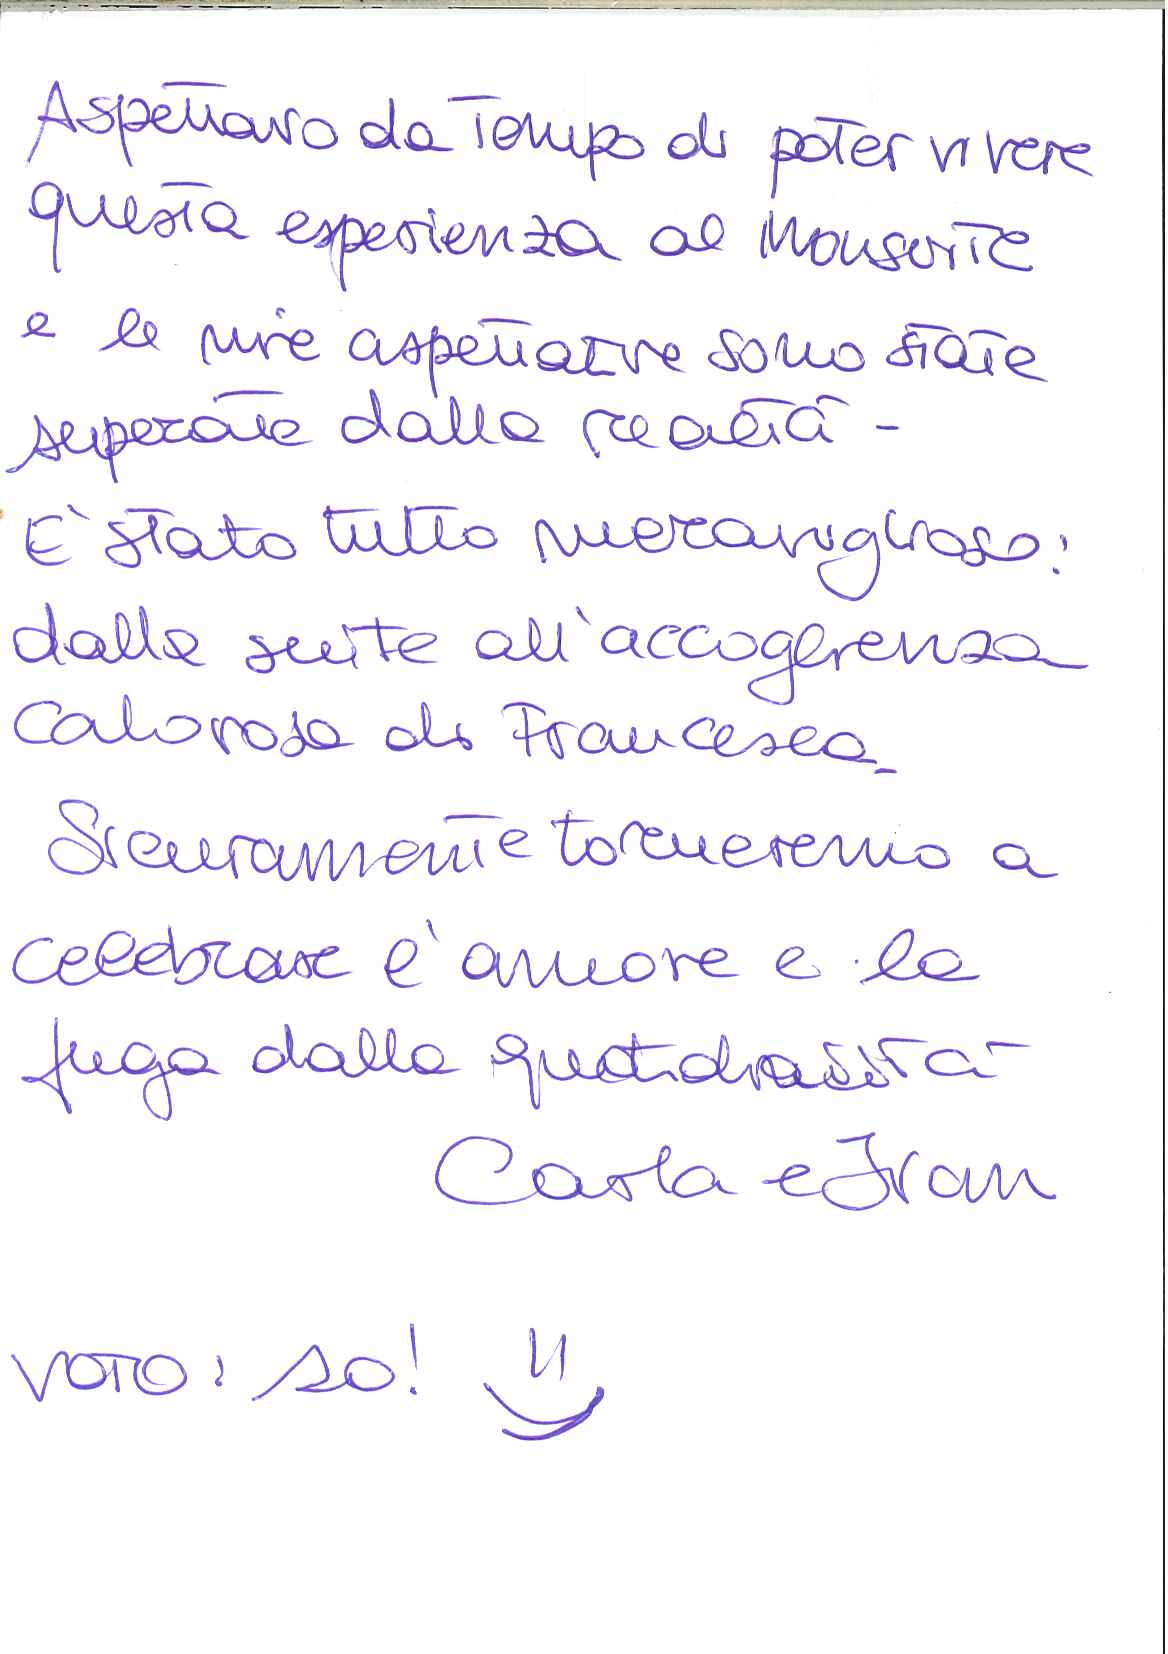 Aspettavo da tempo di poter vivere
questa esperienza al Monsuite
e le mie aspettative sono state
superate dalla realtà -
E' stato tutto meraviglioso:
dalla suite all'accoglienza
calorosa di Francesca_
Sicuramente torneremo a
celebrare l'amore e la
fuga dalla quotidianità
Carla e Ivan
VOTO: 10!